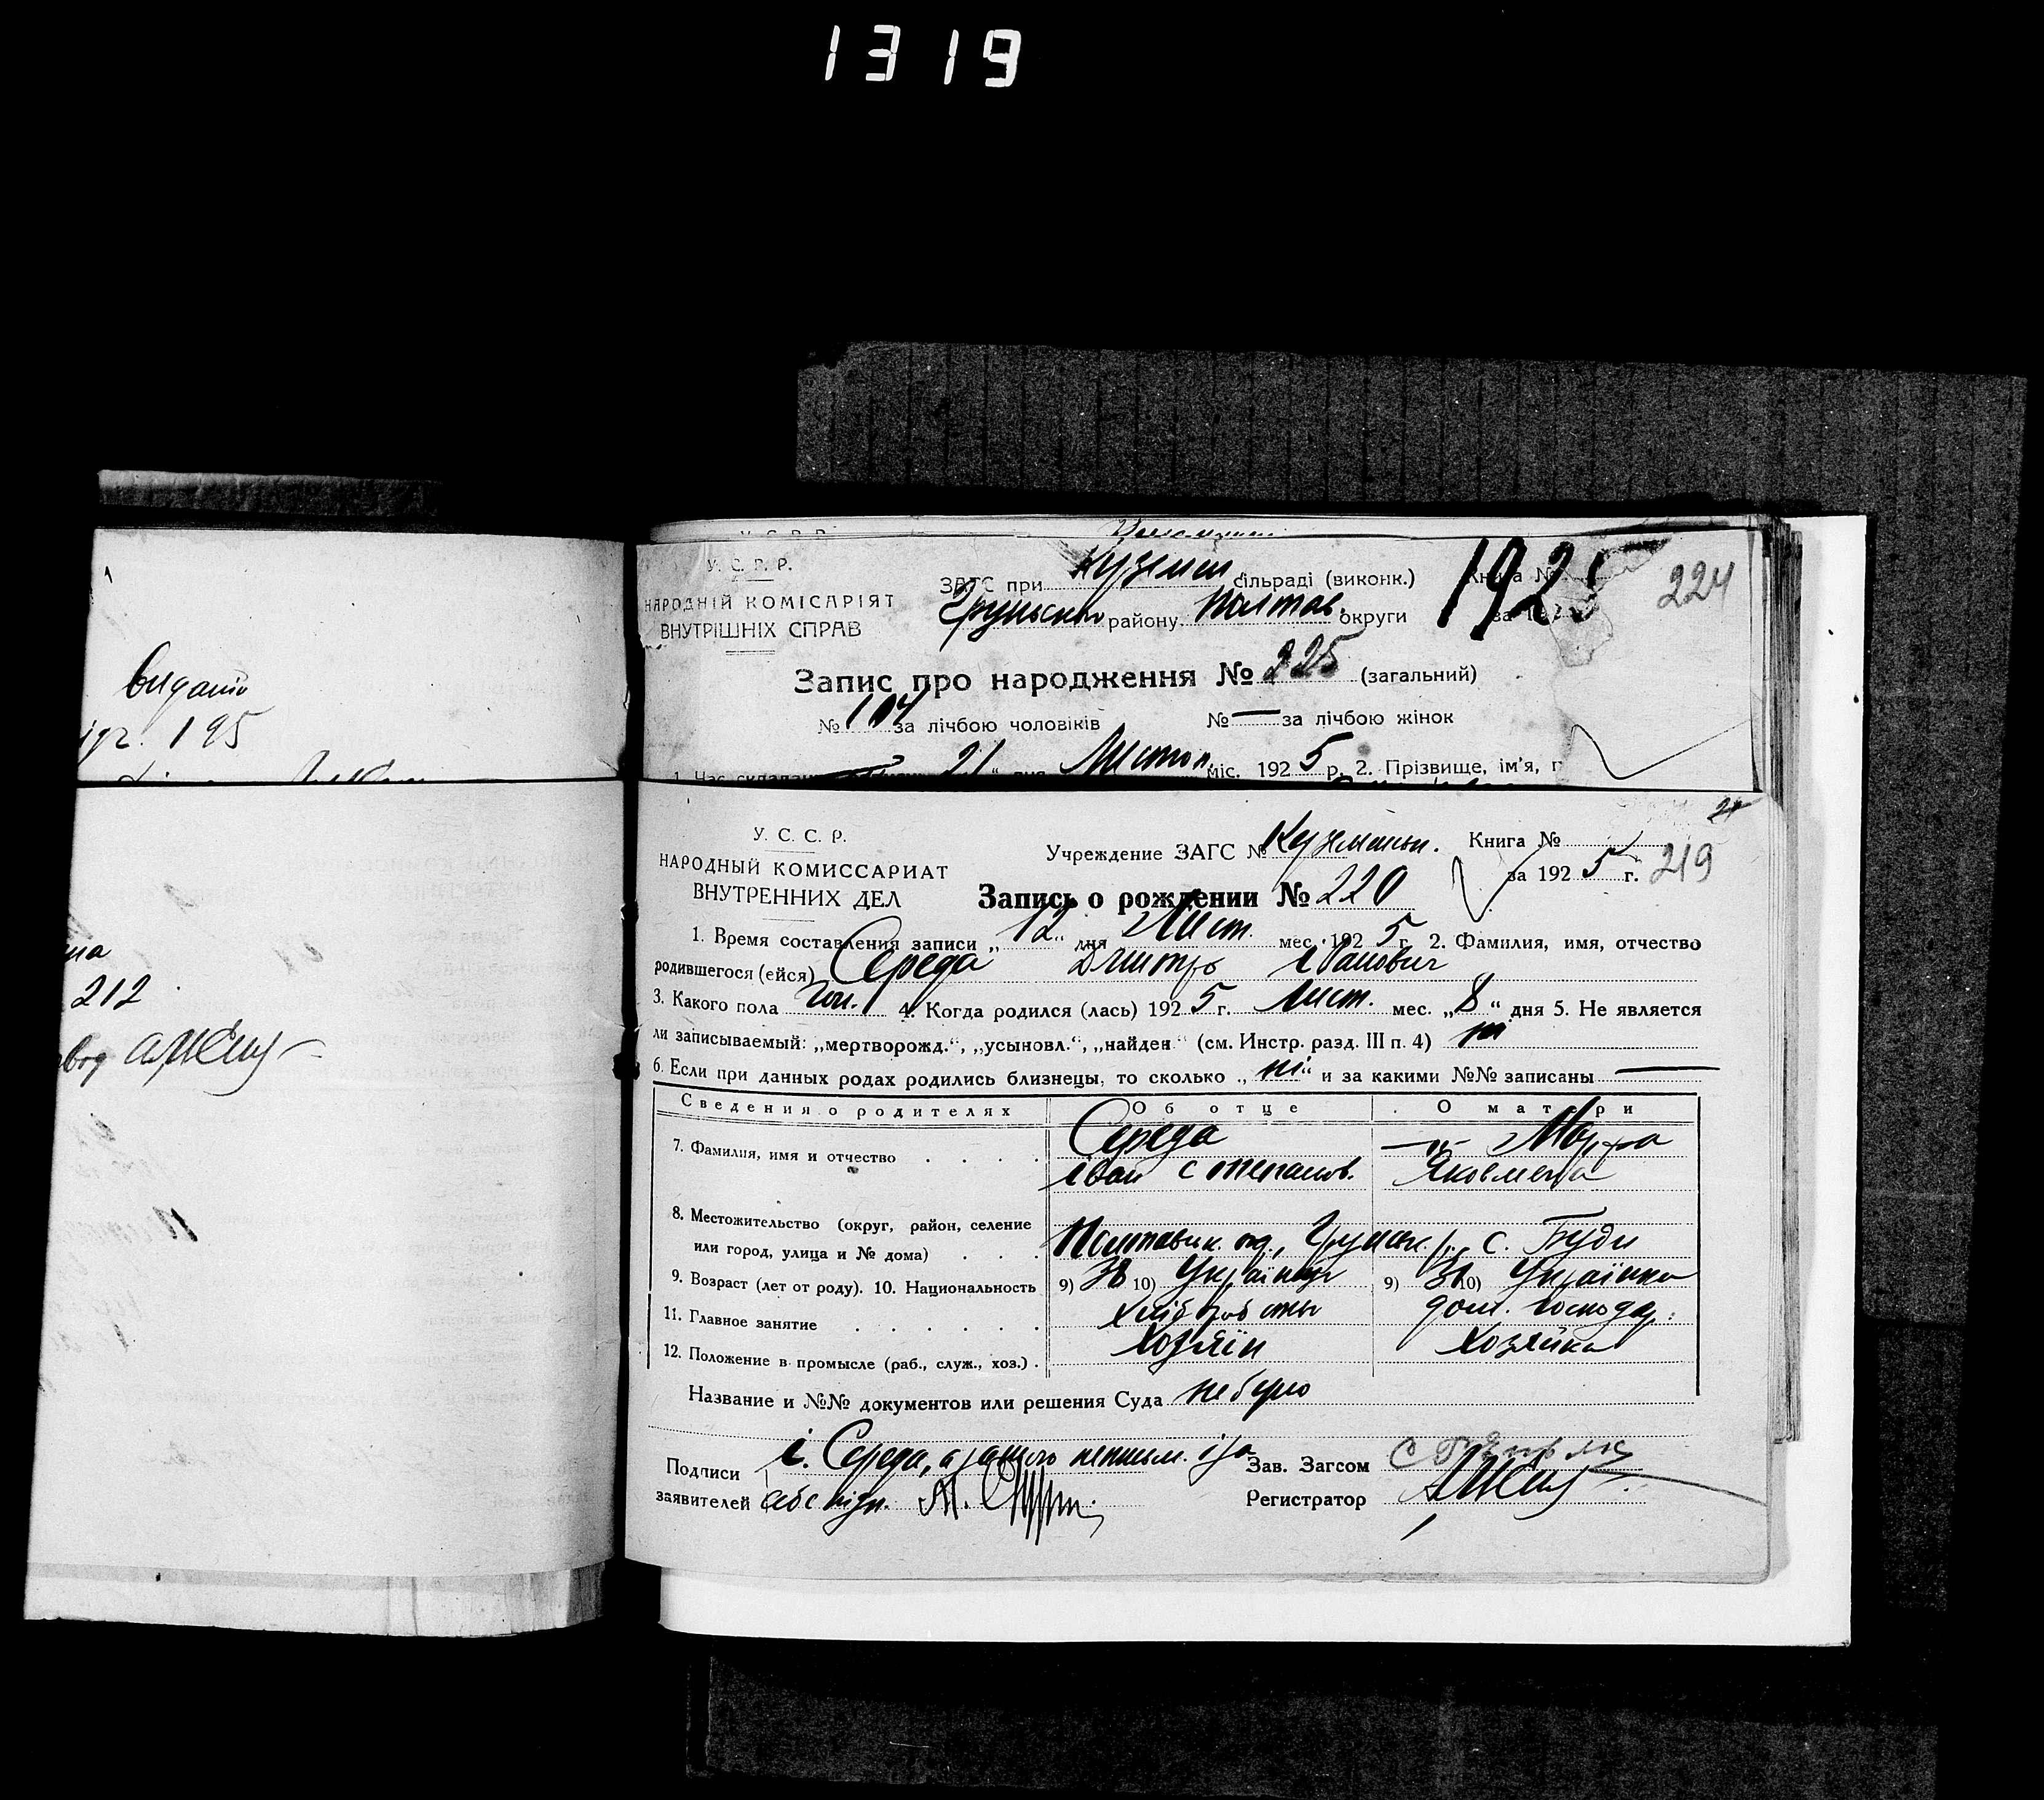 1319
видано
195
на
212
У. С. Р. Р.
НАРОДНІЙ КОМІСАРІЯТ
ВНУТРІШНІХ СПРАВ
ЗАГС при Куземин. сільраді (виконк.) Книга №
Груньськ району Полтав. округи за 192
1925
224
Запис про народження № 225 (загальний)
№ 104 за лічбою чоловіків № — за лічбою жінок
21 " дня Листоп. міс. 1925 р. 2. Прізвище, ім'я, п
У. С. С. Р.
НАРОДНЫЙ КОМИССАРИАТ
ВНУТРЕННИХ ДЕЛ
Учреждение ЗАГС № Книга №
за 1925 г. 219
Запись о рождении № 220
1. Время составления записи „12" дня Лист. мес. 1925 г. 2. Фамилия, имя, отчество
родившегося (ейся) Середа Дмитро Іванович
3. Какого пола Чол. 4. Когда родился (лась) 1925 г. Лист. мес. „8" дня 5. Не является
ли записываемый: „мертворожд.", „усыновл.", „найден" (см. Инстр. разд. III п. 4) ні
6. Если при данных родах родились близнецы, то сколько „ні" и за какими №№ записаны —
Сведения о родителях Об отце О матери
7. Фамилия, имя и отчество Середа —"— Марфа
Іван Степанов. Яковлевна
8. Местожительство (округ, район, селение
или город, улица и № дома) Полтавськ. ок., Груньськ. р., с. Буди
9. Возраст (лет от роду). 10. Национальность 9) 38 10) Українець 9) 10) Українка
11. Главное занятие хлібробство дом. господар.
12. Положение в промысле (раб., служ., хоз.) Хозяїн Хозяйка
Название и №№ документов или решения Суда не було
Подписи І. Середа, а за його неписьм.
заявителей
Зав. Загсом
Регистратор